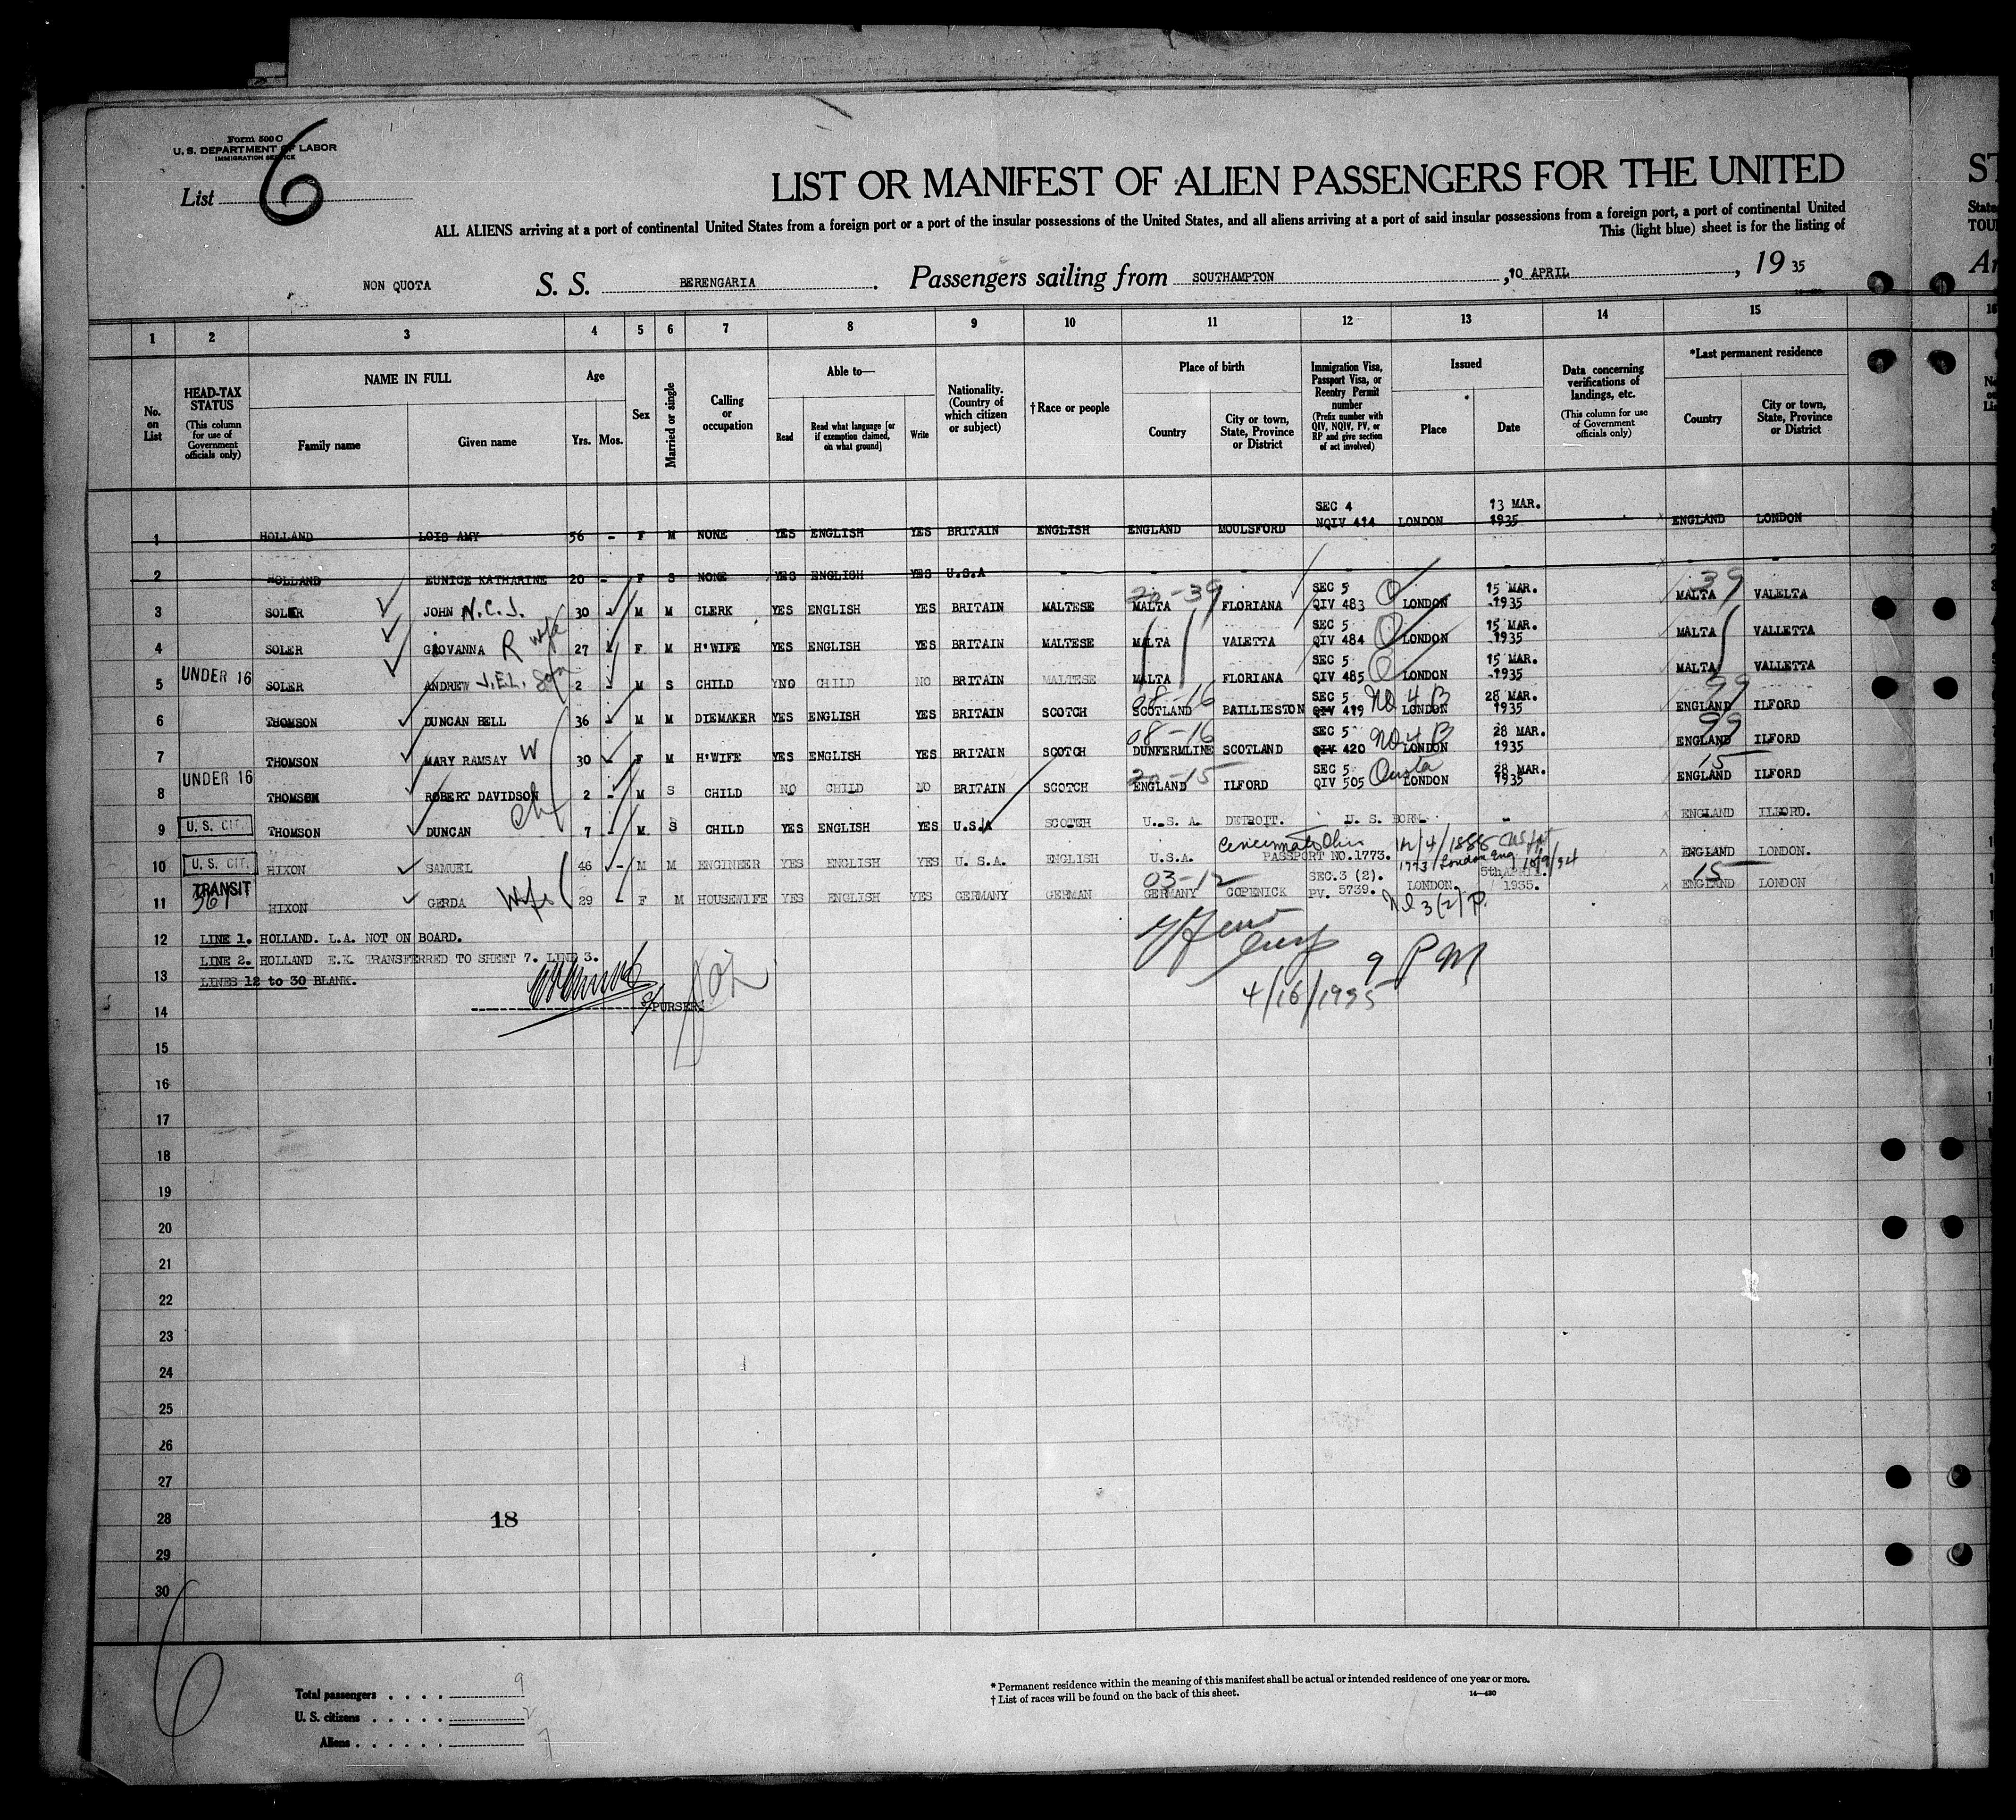 Form 500 C
U. S. DEPARTMENT OF LABOR
IMMIGRATION SERVICE
List 6
LIST OR MANIFEST OF ALIEN PASSENGERS FOR THE UNITED
ST
ALL ALIENS arriving at a port of continental United States from a foreign port or a port of the insular possessions of the United States, and all aliens arriving at a port of said insular possessions from a foreign port, a port of continental United
State
This (light blue) sheet is for the listing of
TOU
NON QUOTA S. S. BERENGARIA. Passengers sailing from SOUTHAMPTON, 10 APRIL, 19 35
1 2 3 4 5 6 7 8 9 10 11 12 13 14 15 16
No. on List
HEAD-TAX STATUS (This column for use of Government officials only)
NAME IN FULL
Family name
Given name
Age
Yrs. Mos.
Sex
Married or single
Calling or occupation
Able to—
Read
Read what language [or if exemption claimed, on what ground]
Write
Nationality. (Country of which citizen or subject)
†Race or people
Place of birth
Country
City or town, State, Province or District
Immigration Visa, Passport Visa, or Reentry Permit number (Prefix number with QIV, NQIV, PV, or RP and give section of act involved)
Issued
Place
Date
Data concerning verifications of landings, etc. (This column for use of Government officials only)
*Last permanent residence
Country
City or town, State, Province or District
1 HOLLAND LOIS AMY 56 - F M NONE YES ENGLISH YES BRITAIN ENGLISH ENGLAND MOULSFORD SEC 4 NQIV 414 LONDON 13 MAR. 1935 ENGLAND LONDON
2 HOLLAND EUNICE KATHARINE 20 - F S NONE YES ENGLISH YES U.S.A - - - - - - -
3 SOLER JOHN N.C.J. 30 - M M CLERK YES ENGLISH YES BRITAIN MALTESE 20-39 MALTA FLORIANA SEC 5 QIV 483 Q LONDON 15 MAR. 1935 39 MALTA VALELTA
4 SOLER GIOVANNA R wife 27 - F M H'WIFE YES ENGLISH YES BRITAIN MALTESE MALTA VALETTA SEC 5 QIV 484 Q LONDON 15 MAR. 1935 MALTA VALLETTA
5 UNDER 16 SOLER ANDREW J.E.L. Son 2 - M S CHILD YNO CHILD NO BRITAIN MALTESE MALTA FLORIANA SEC 5 QIV 485 Q LONDON 15 MAR. 1935 MALTA VALLETTA
6 THOMSON DUNCAN BELL 36 M M DIEMAKER YES ENGLISH YES BRITAIN SCOTCH 08-16 SCOTLAND BAILLIESTON SEC 5 QIV 419 NQ 4 B LONDON 28 MAR. 1935 99 ENGLAND ILFORD
7 THOMSON MARY RAMSAY W 30 - F M H'WIFE YES ENGLISH YES BRITAIN SCOTCH 08-16 DUNFERMLINE SCOTLAND SEC 5 QIV 420 NQ 4 B LONDON 28 MAR. 1935 99 ENGLAND ILFORD
8 UNDER 16 THOMSON ROBERT DAVIDSON 2 - M S CHILD NO CHILD NO BRITAIN SCOTCH 20-15 ENGLAND ILFORD SEC 5 QIV 505 Quota LONDON 28 MAR. 1935 15 ENGLAND ILFORD
9 U. S. CIT. THOMSON DUNCAN Ch 7 - M S CHILD YES ENGLISH YES U.S.A SCOTCH U. S. A. DETROIT. U. S. BORN. - ENGLAND ILFORD.
10 U. S. CIT. HIXON SAMUEL 46 - M M ENGINEER YES ENGLISH YES U. S.A. ENGLISH U.S.A. Cincinnati Ohio PASSPORT NO.1773. 12/4/1888 1773/London Eng 10/9/34 ENGLAND LONDON.
11 TRANSIT 361 HIXON GERDA Wife 29 - F M HOUSEWIFE YES ENGLISH YES GERMANY GERMAN 03-12 GERMANY COPENICK SEC.3 (2). PV. 5739. LONDON. 5th APRIL. 1935. 15 ENGLAND LONDON
12 LINE 1. HOLLAND. L.A. NOT ON BOARD.
LINE 2. HOLLAND E.K. TRANSFERRED TO SHEET 7. LINE 3.
13 LINES 12 to 30 BLANK.
9 PM
4/16/1935
PURSER.
14
15
16
17
18
19
20
21
22
23
24
25
26
27
28
18
29
30
6
Total passengers . . . . 9
U. S. citizens . . . . . 2
Aliens . . . . . . 7
* Permanent residence within the meaning of this manifest shall be actual or intended residence of one year or more.
† List of races will be found on the back of this sheet.
14—430